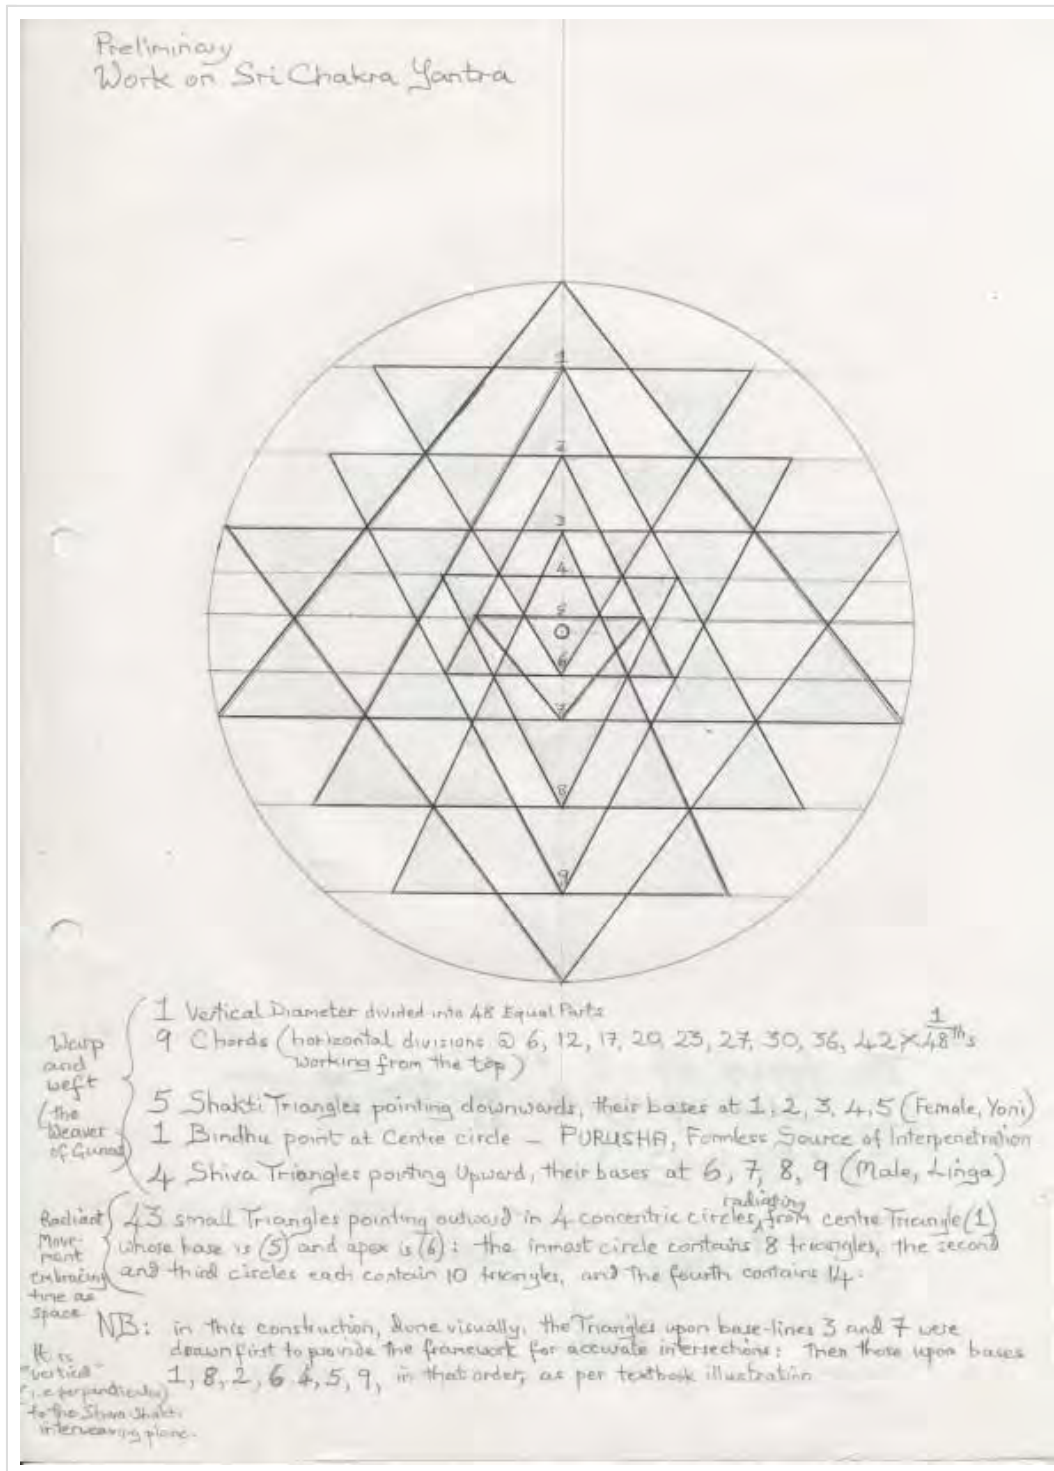 Preliminary
Work on Sri Chakra Yantra
1
2
3
4
5
6
7
8
9
Warp
and
weft
(the
Weaver
of Gunas)
1 Vertical Diameter divided into 48 Equal Parts
9 Chords (horizontal divisions @ 6, 12, 17, 20, 23, 27, 30, 36, 42 × 1/48ths
working from the top)
5 Shakti Triangles pointing downwards, their bases at 1, 2, 3, 4, 5 (Female, Yoni)
1 Bindhu point at Centre circle – PURUSHA, Formless Source of Interpenetration
4 Shiva Triangles pointing Upward, their bases at 6, 7, 8, 9 (Male, Linga)
Radiant
Move-
ment
embracing
time as
space
43 small Triangles pointing outward in 4 concentric circles, radiating from centre Triangle (1)
whose base is (5) and apex is (6): the inmost circle contains 8 triangles, the second
and third circles each contain 10 triangles, and the fourth contains 14.
NB: in this construction, done visually, the Triangles upon base-lines 3 and 7 were
drawn first to provide the framework for accurate intersections: Then those upon bases
1, 8, 2, 6 4, 5, 9, in that order, as per textbook illustration
It is
"vertical"
(i.e perpendicular)
to the Shiva Shakti
interweaving plane.